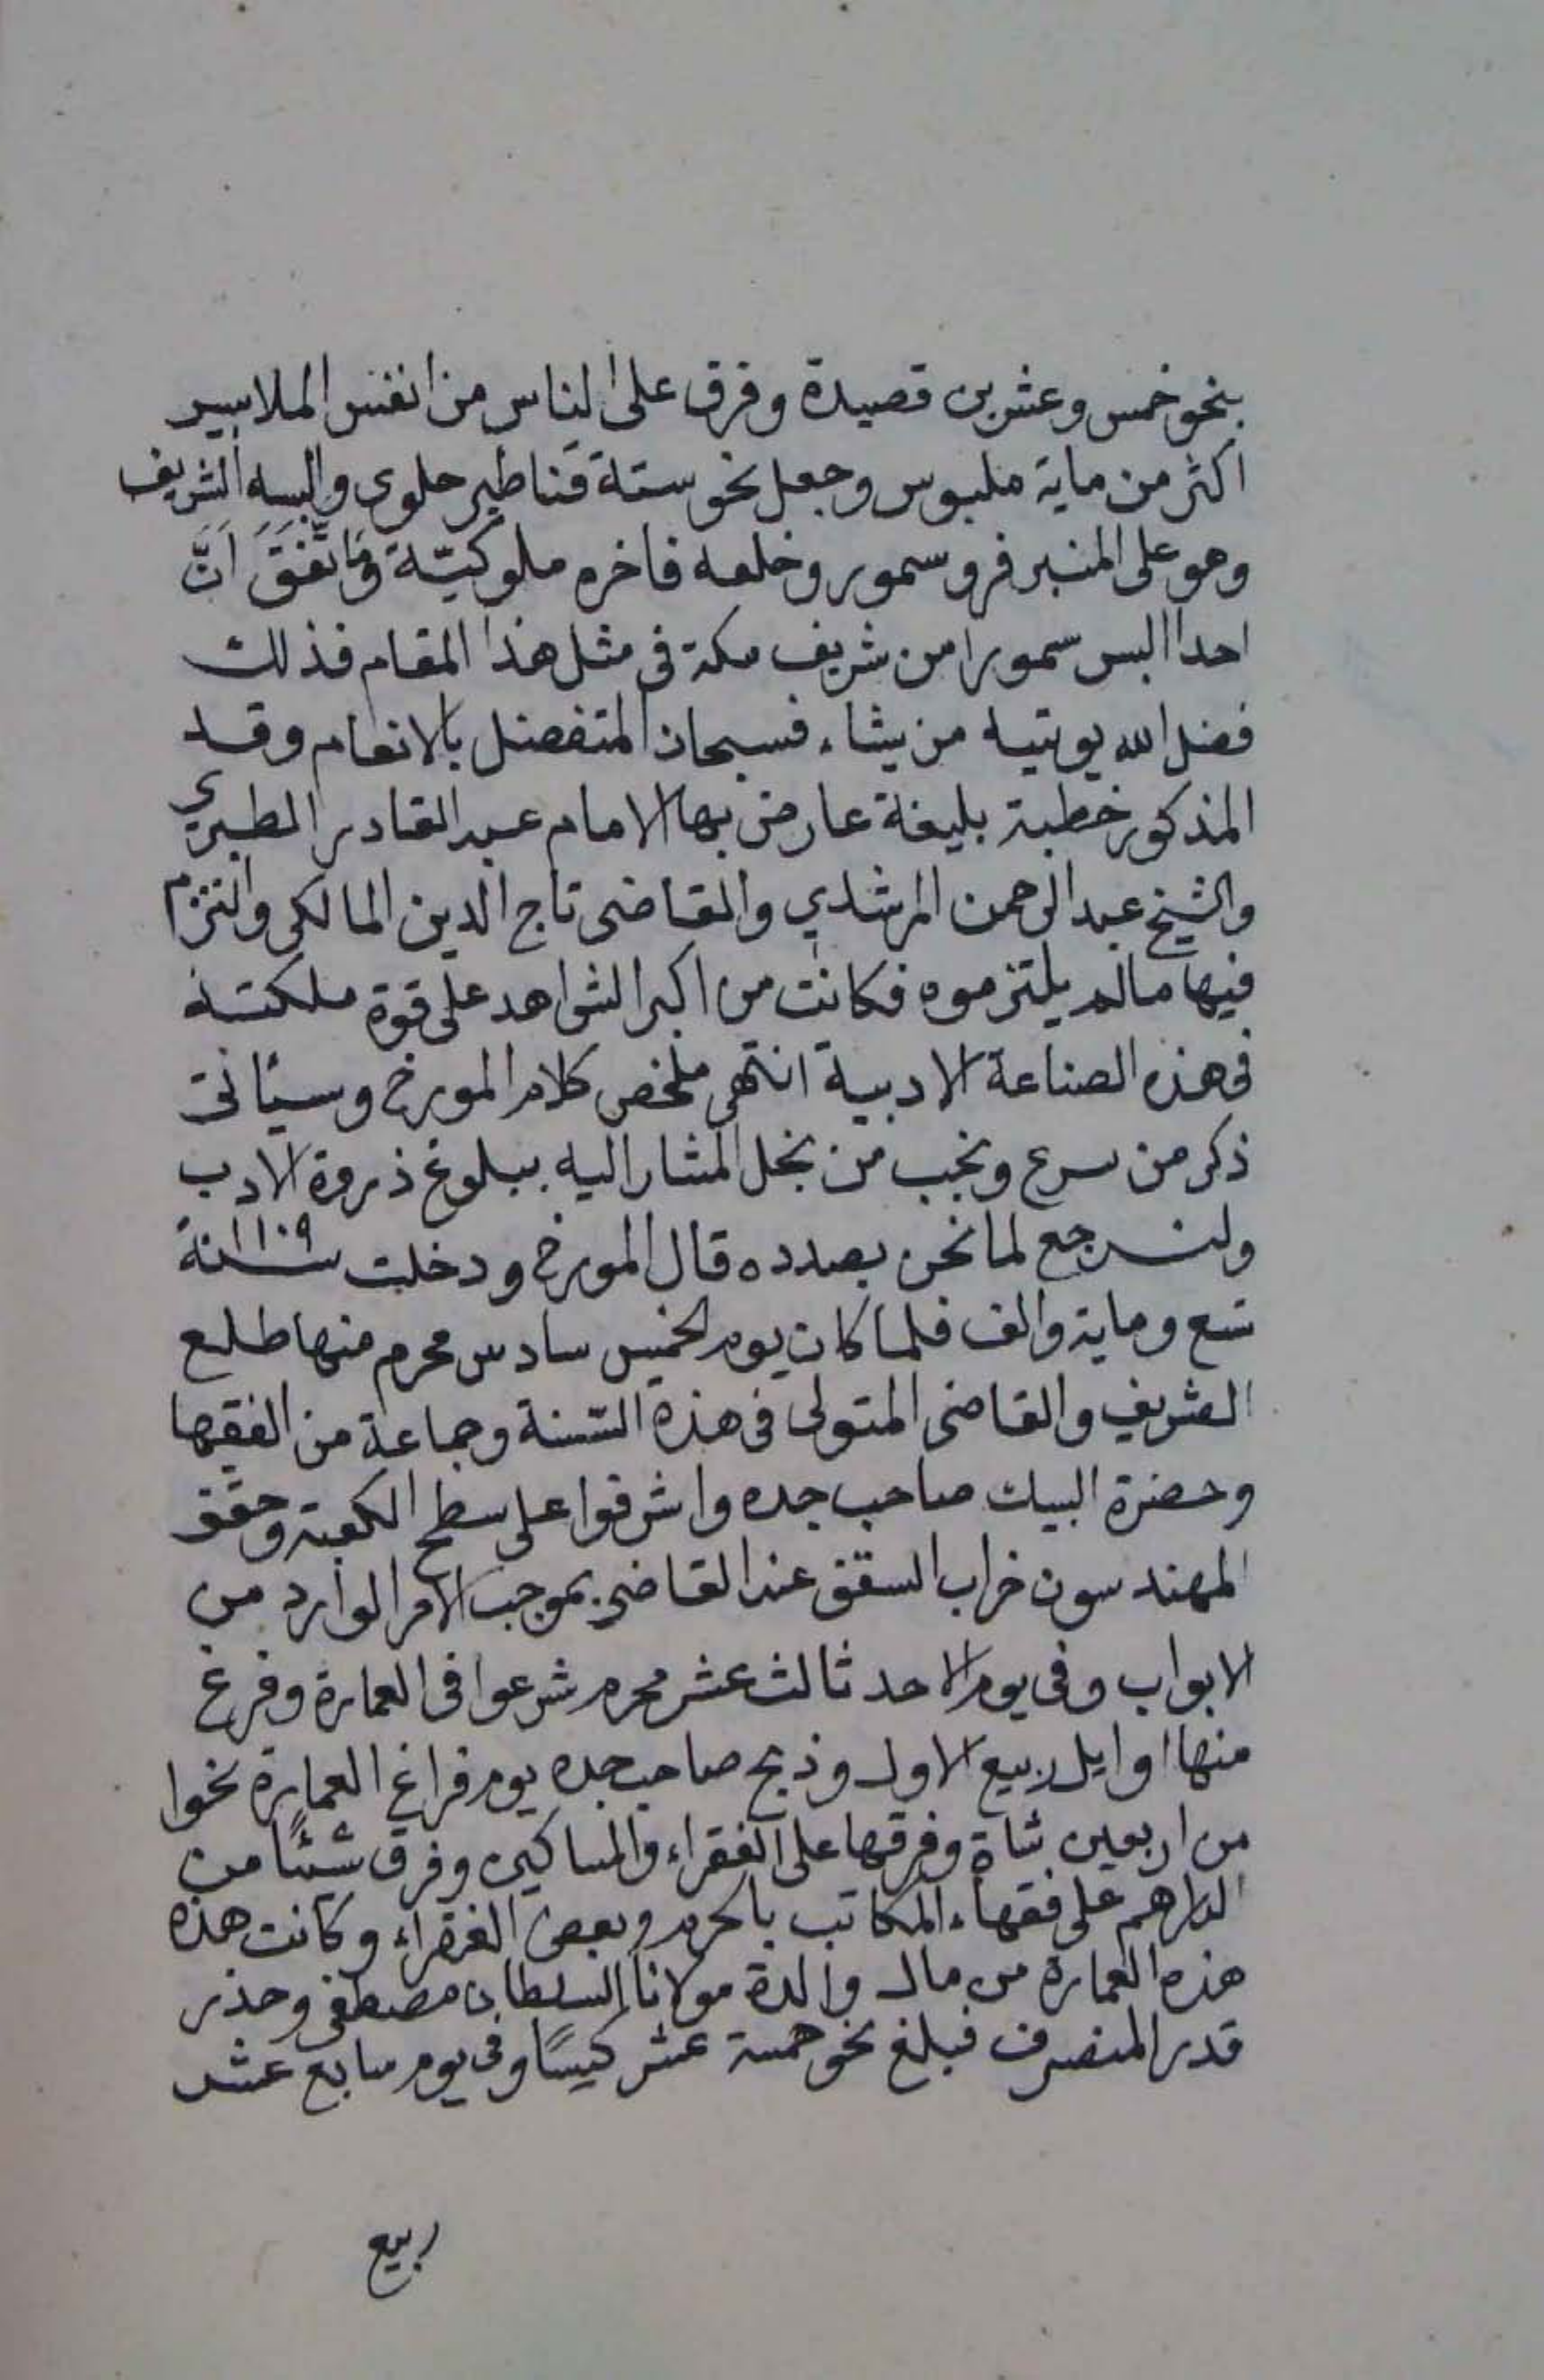 بنحو خمس وعشرين قصيدة وفرق على الناس من انفس الملابيس
اكثر من ماية ملبوس وجعل نحو ستة قناطير حلوى والبسه الشريف
وهو على المنبر فرو سمور وخلعه فاخره ملوكيّة وَمَا تَّفَقَ اَنَّ
احدا البس سمورا من شريف مكة فى مثل هذا المقام فذلك
فضل الله يوتيه من يشاء فسبحان المتفضل بالانعام وقد
المذكور خطبة بليغة عارض بها الامام عبد القادر الطبري
والشيخ عبد الرحمن المرشدي والقاضى تاج الدين المالكى والتزم
فيها مالم يلتزموه فكانت من اكبر الشواهد على قوة ملكته
فى هذه الصناعة الادبية انتهى ملخص كلام المورخ وسيئاتى
ذكر من سرع ونجب من نجل المشار اليه ببلوغ ذروة الادب
ولنرجع لما نحن بصدده قال المورخ ودخلت سنة ١١٠٩
تسع وماية والف فلما كان يوم الخميس سادس محرم منها طلع
الشريف والقاضى المتولى فى هذه السّنة وجماعة من الفقها
وحضرة البيك صاحب جده واشرفوا على سطح الكعبة وحقق
المهندسون خراب السقف عند القاضى بموجب الامر الوارد من
الابواب وفى يوم الاحد ثالث عشر محرم شرعوا فى العمارة وفرغ
منها اوايل ربيع الاول وذبح صاحب جده يوم فراغ العمارة نحوا
من اربعين شاة وفرقها على الفقراء والمساكين وفرق شئًا من
الدراهم على فقهاء المكاتب بالحرم وبعض الفقراء وكانت هذه
هذه العمارة من مال والدة مولانا السلطان مصطفى وحذر
قدر المنصرف فبلغ نحو خمسة عشر كيسًا وفى يوم سابع عشر
ربيع